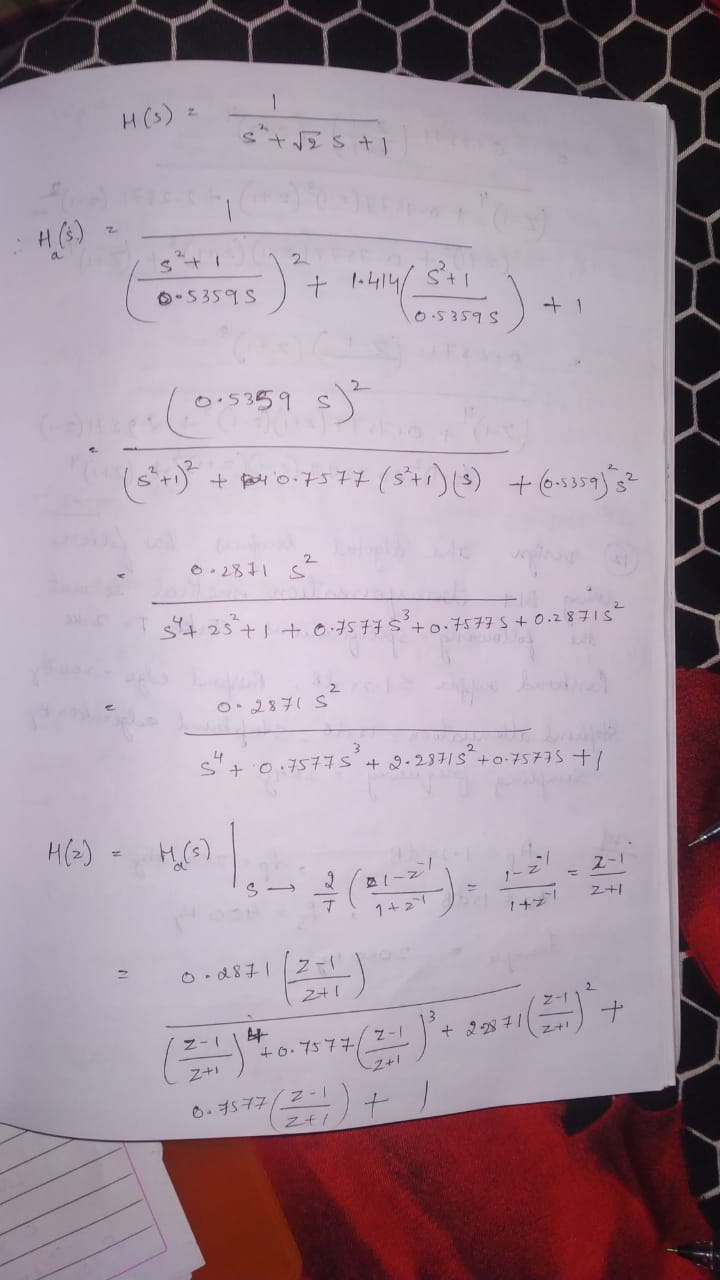 H(s) = 1 / (s² + √2 s + 1)
∴ Hₐ(s) = 1 / (((s²+1)/(0.5359 s))² + 1.414((s²+1)/(0.5359 s)) + 1)
= (0.5359 s)² / ((s²+1)² + 0.7577 (s²+1)(s) + (0.5359)² s²)
= 0.2871 s² / (s⁴ + 2s² + 1 + 0.7577 s³ + 0.7577 s + 0.2871 s²)
= 0.2871 s² / (s⁴ + 0.7577 s³ + 2.2871 s² + 0.7577 s + 1)
H(z) = Hₐ(s) | s → 2/T ((1-z⁻¹)/(1+z⁻¹)) = (1-z⁻¹)/(1+z⁻¹) = (z-1)/(z+1)
= 0.2871 ((z-1)/(z+1)) / (((z-1)/(z+1))⁴ + 0.7577 ((z-1)/(z+1))³ + 2.2871 ((z-1)/(z+1))² +
0.7577 ((z-1)/(z+1)) + 1